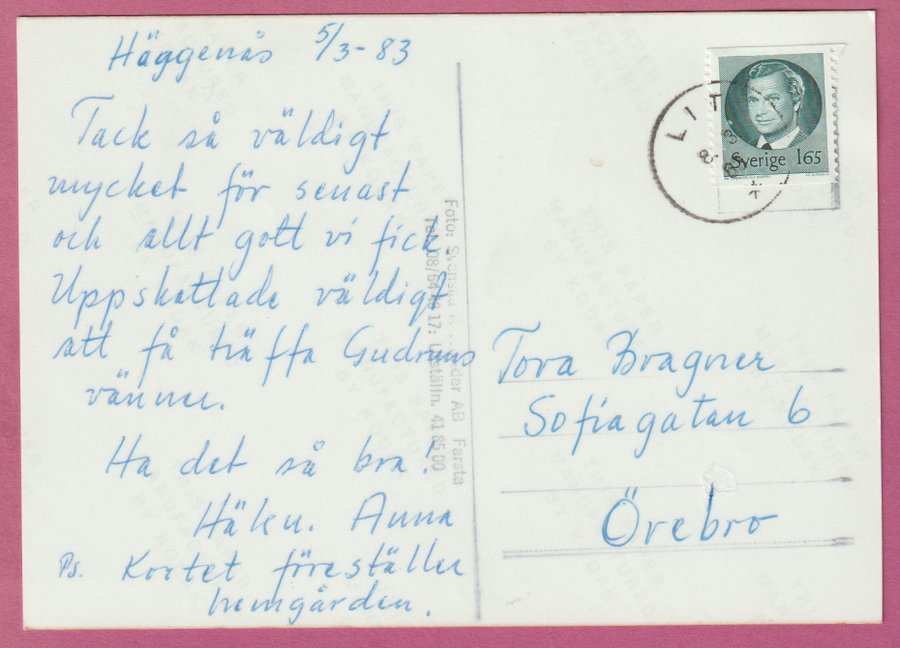 Häggenås 5/3-83
Tack så väldigt
mycket för senast
och allt gott vi fick.
Uppskattade väldigt
att få träffa Gudruns
vänner.
Ha det så bra!
Häln. Anna
Ps. Kortet föreställer
hemgården.
Foto: Svenska AB Farsta
Tel. 08/64 17: Utställn. 41 85 00
LIT
Sverige 165
Tora Bragner
Sofiagatan 6
Örebro